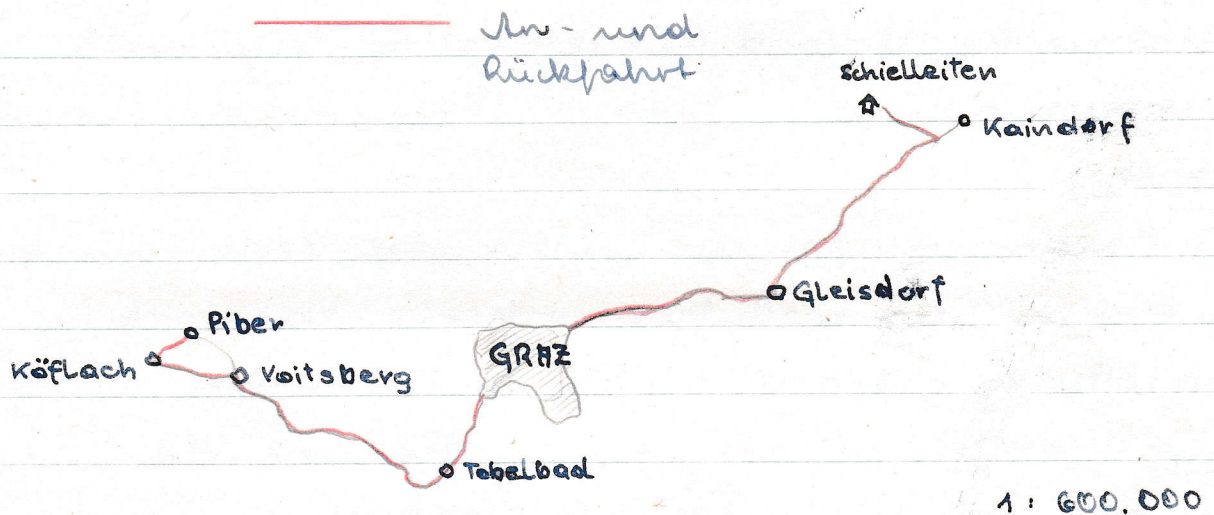 An- und
Rückfahrt
Schielleiten
Kaindorf
Gleisdorf
Piber
GRAZ
Köflach
Voitsberg
Tobelbad
1: 600.000